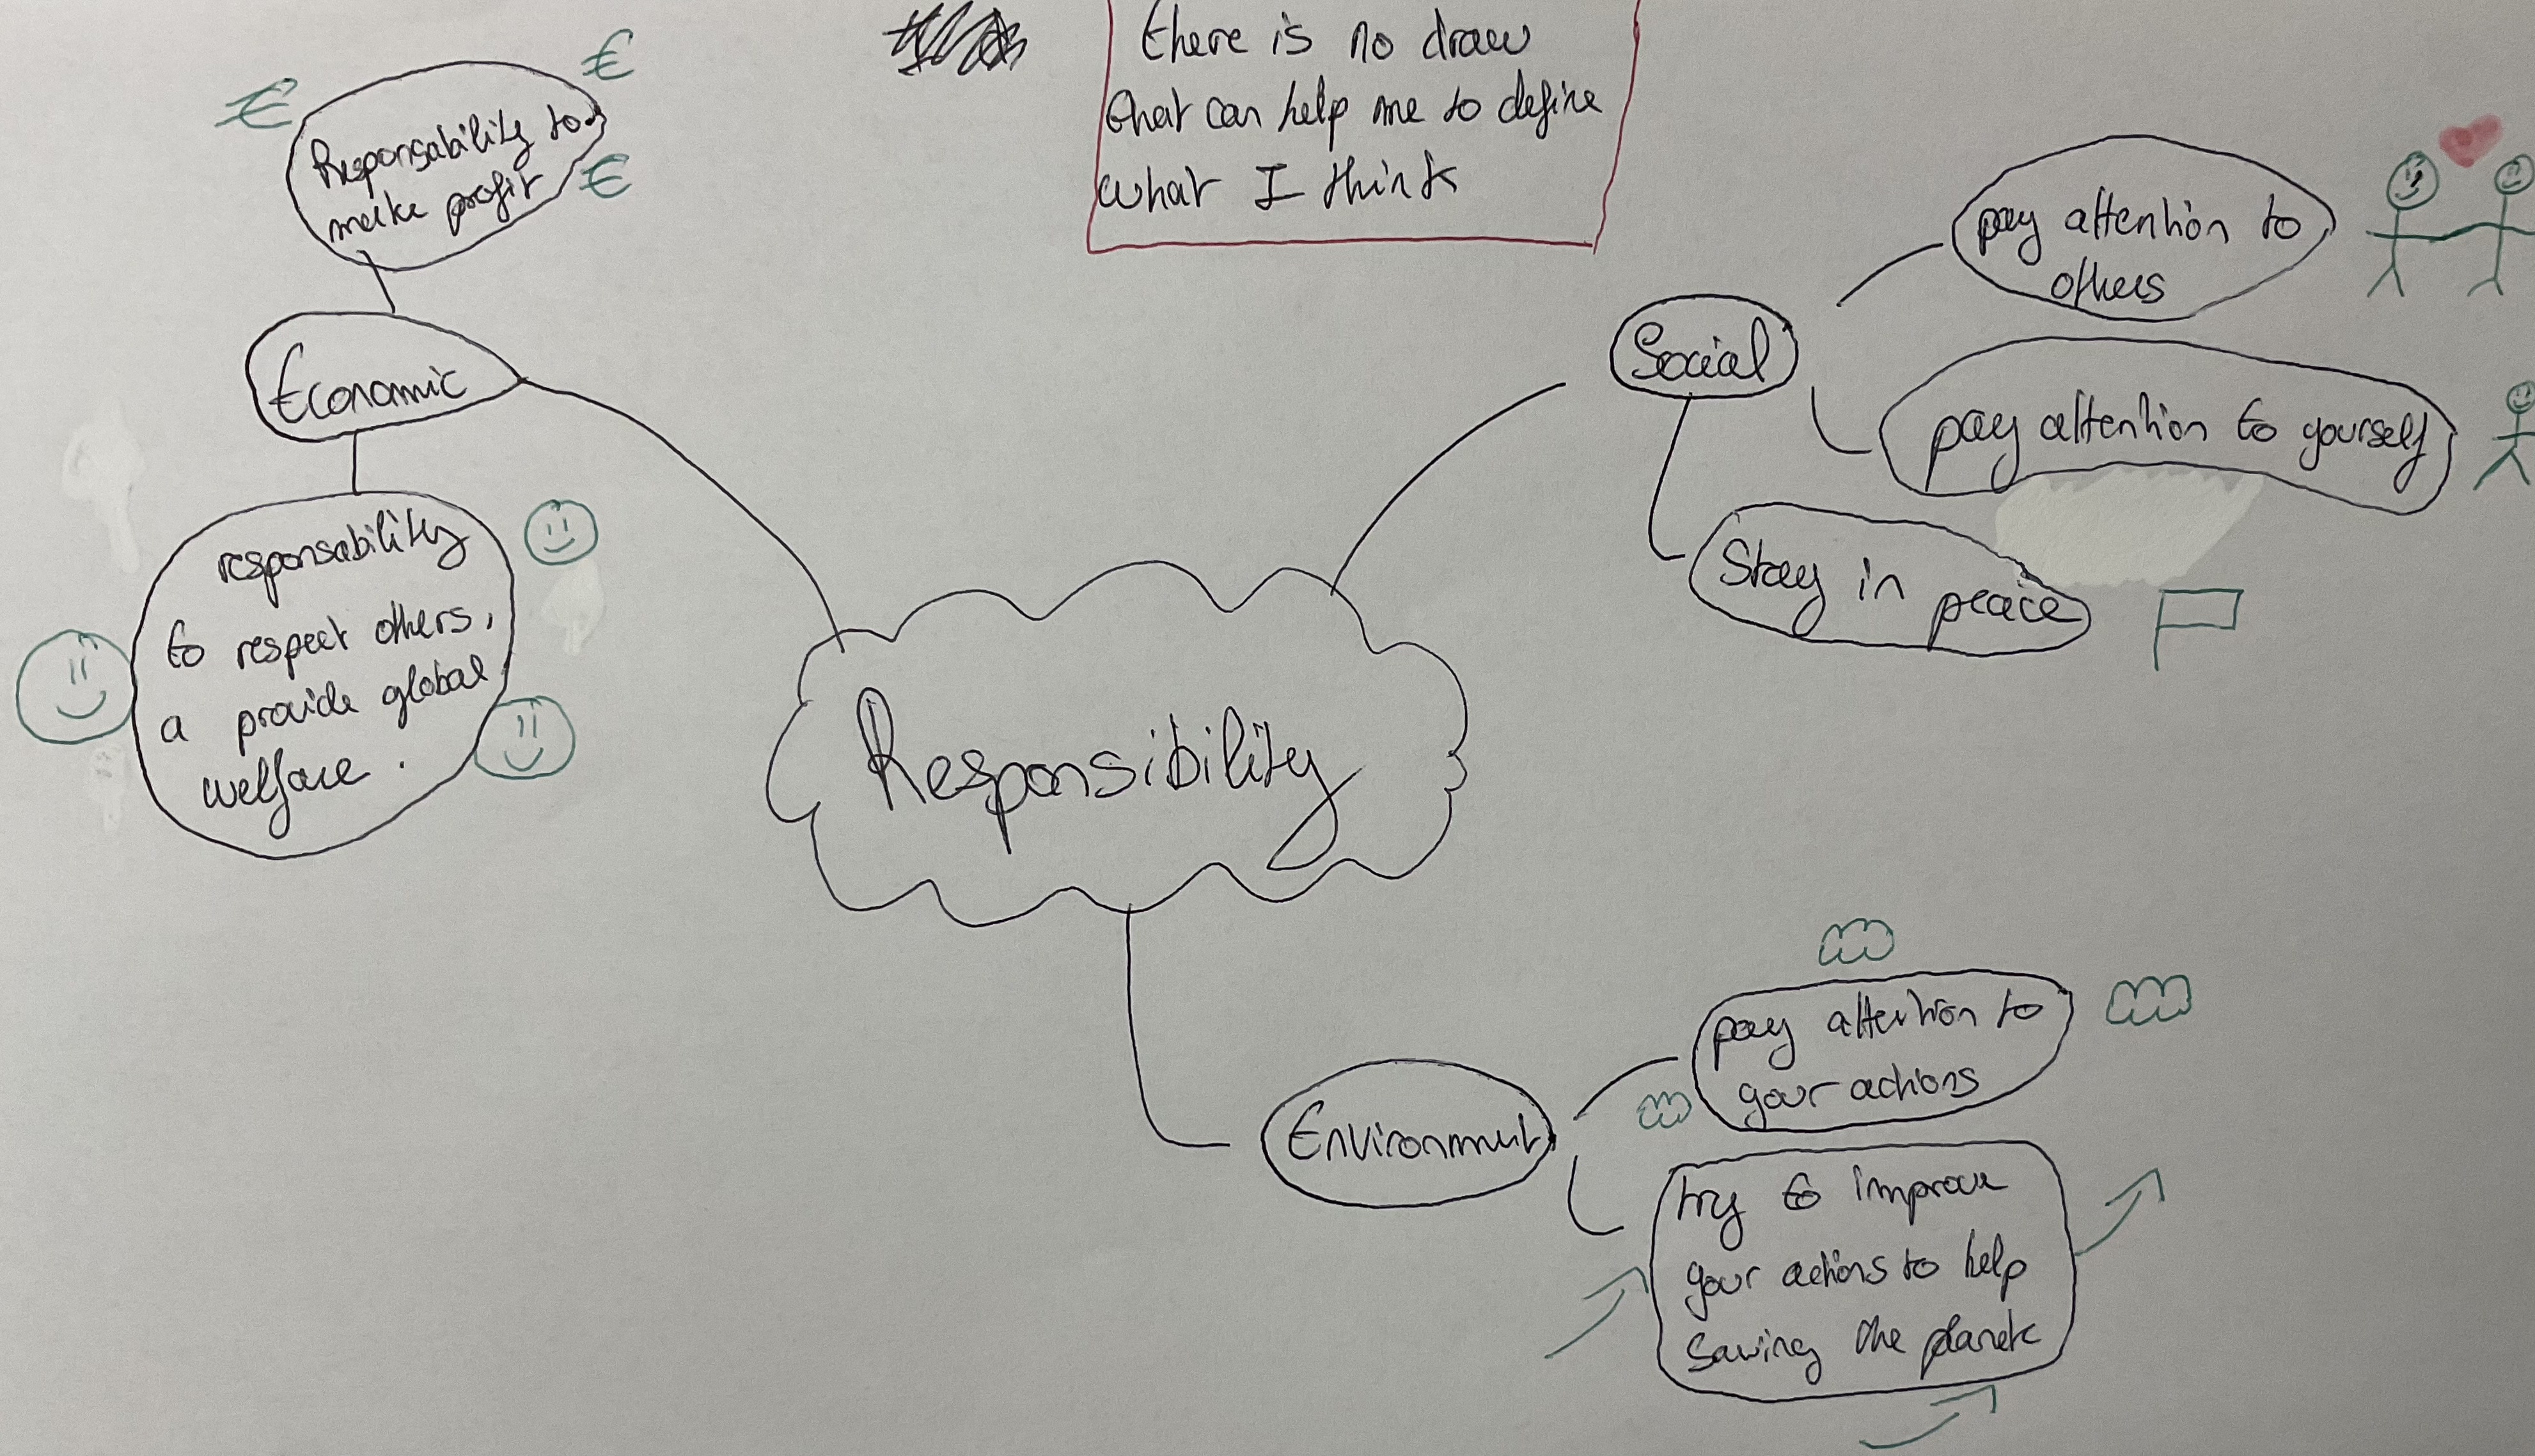 there is no draw
that can help me to define
what I think
Responsability to
make profit
Economic
responsability
to respect others,
a provide global
welfare.
Responsibility
Social
pay attention to
others
pay attention to yourself
Stay in peace
Environment
pay attention to
your actions
try to improve
your actions to help
saving the planet
€
€
€